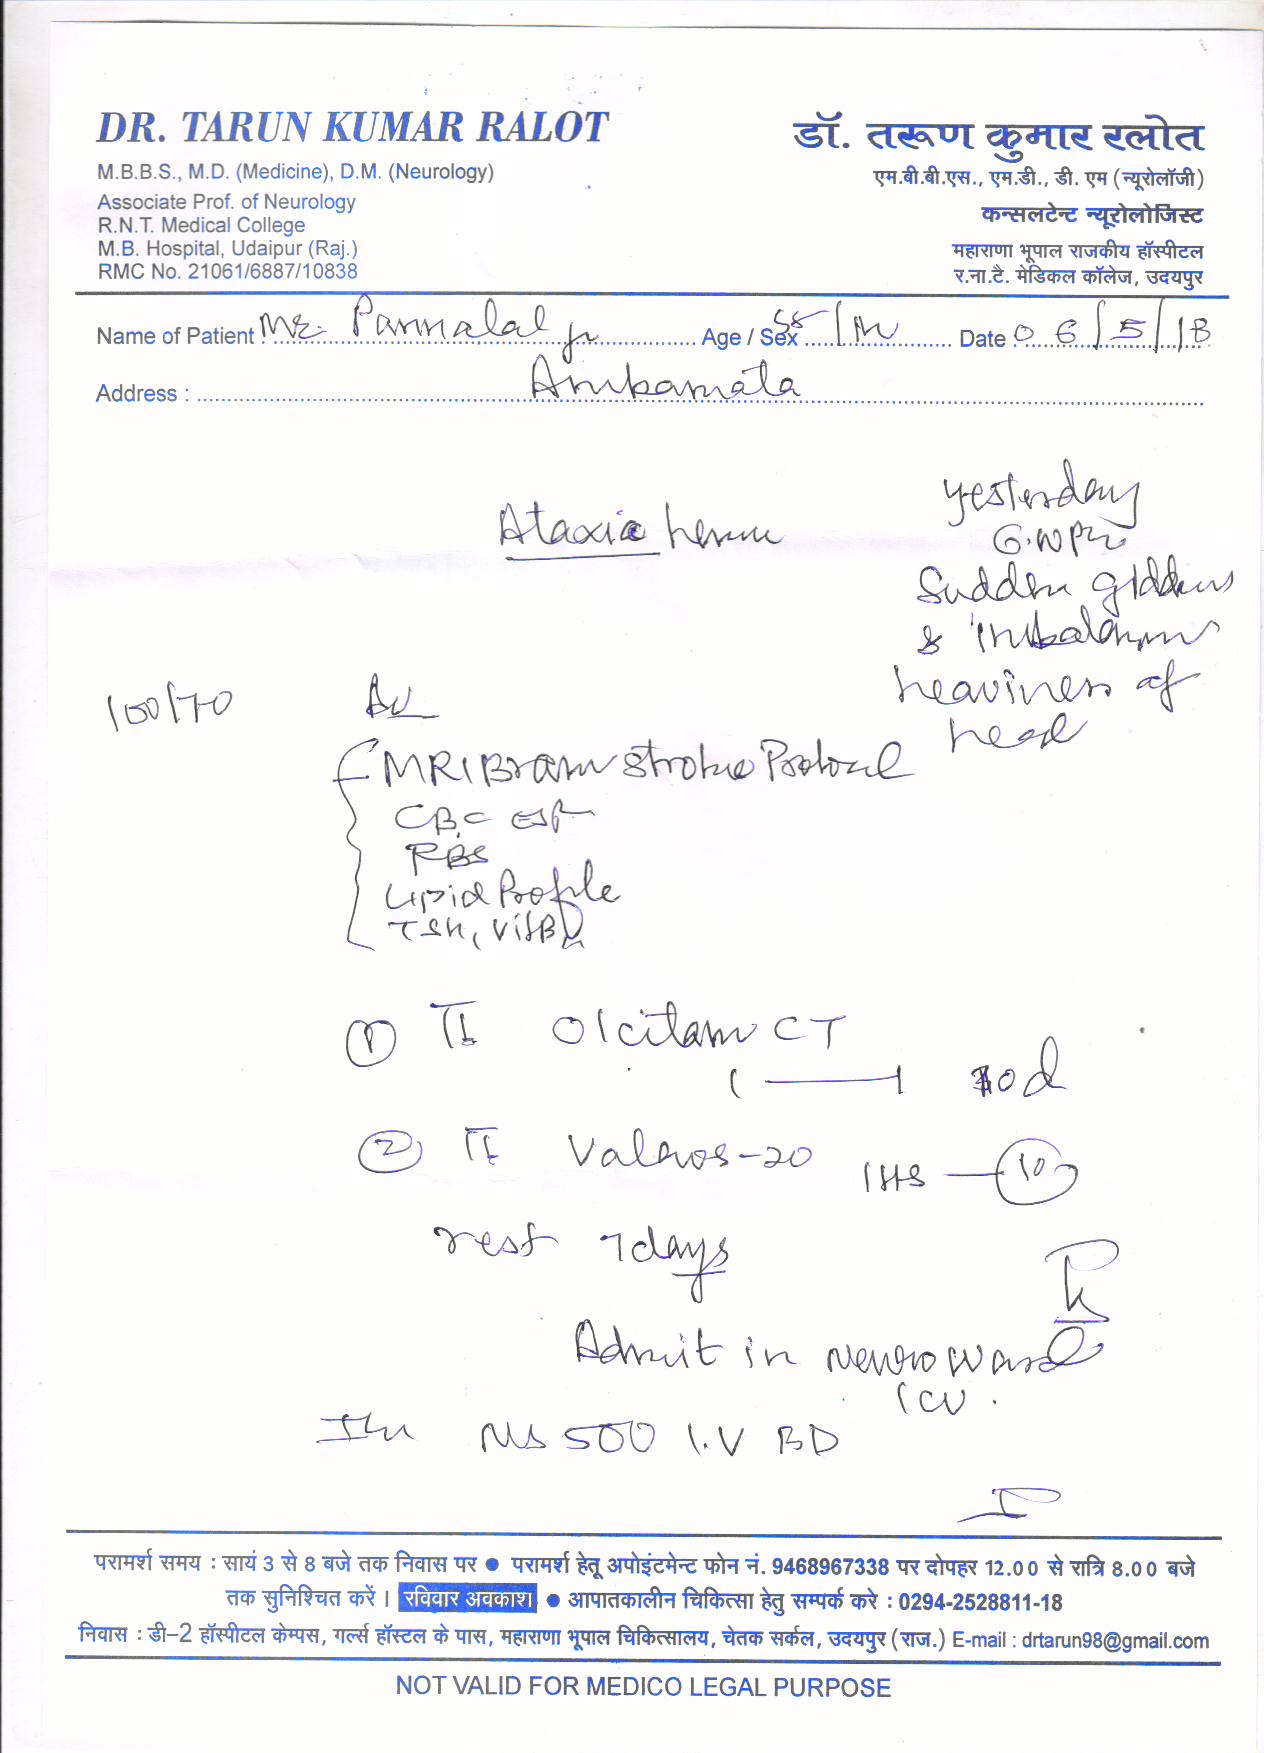 DR. TARUN KUMAR RALOT
M.B.B.S., M.D. (Medicine), D.M. (Neurology)
Associate Prof. of Neurology
R.N.T. Medical College
M.B. Hospital, Udaipur (Raj.)
RMC No. 21061/6887/10838
डॉ. तरूण कुमार रलोत
एम.बी.बी.एस., एम.डी., डी. एम (न्यूरोलॉजी)
कन्सलटेन्ट न्यूरोलोजिस्ट
महाराणा भूपाल राजकीय हॉस्पीटल
र.ना.टै. मेडिकल कॉलेज, उदयपुर
Name of Patient : Mr. Pannalal Age / Sex 58/M Date 06/5/18
Address : Ambamata
yesterday
Ataxia
Sudden giddiness
& imbalance
heaviness of
head
MRI Brain Stroke Protocol
CBC ESR
RBS
Lipid Profile
TSH, Vit B12
① Olcitam CT
1 — 1 10d
② 20 1HS — 10
rest 7days
Admit in Neuro Ward
ICU.
NS 500 I.V BD
परामर्श समय : सायं 3 से 8 बजे तक निवास पर ● परामर्श हेतू अपोइंटमेन्ट फोन नं. 9468967338 पर दोपहर 12.00 से रात्रि 8.00 बजे
तक सुनिश्चित करें । रविवार अवकाश ● आपातकालीन चिकित्सा हेतु सम्पर्क करे : 0294-2528811-18
निवास : डी–2 हॉस्पीटल केम्पस, गर्ल्स हॉस्टल के पास, महाराणा भूपाल चिकित्सालय, चेतक सर्कल, उदयपुर (राज.) E-mail : drtarun98@gmail.com
NOT VALID FOR MEDICO LEGAL PURPOSE